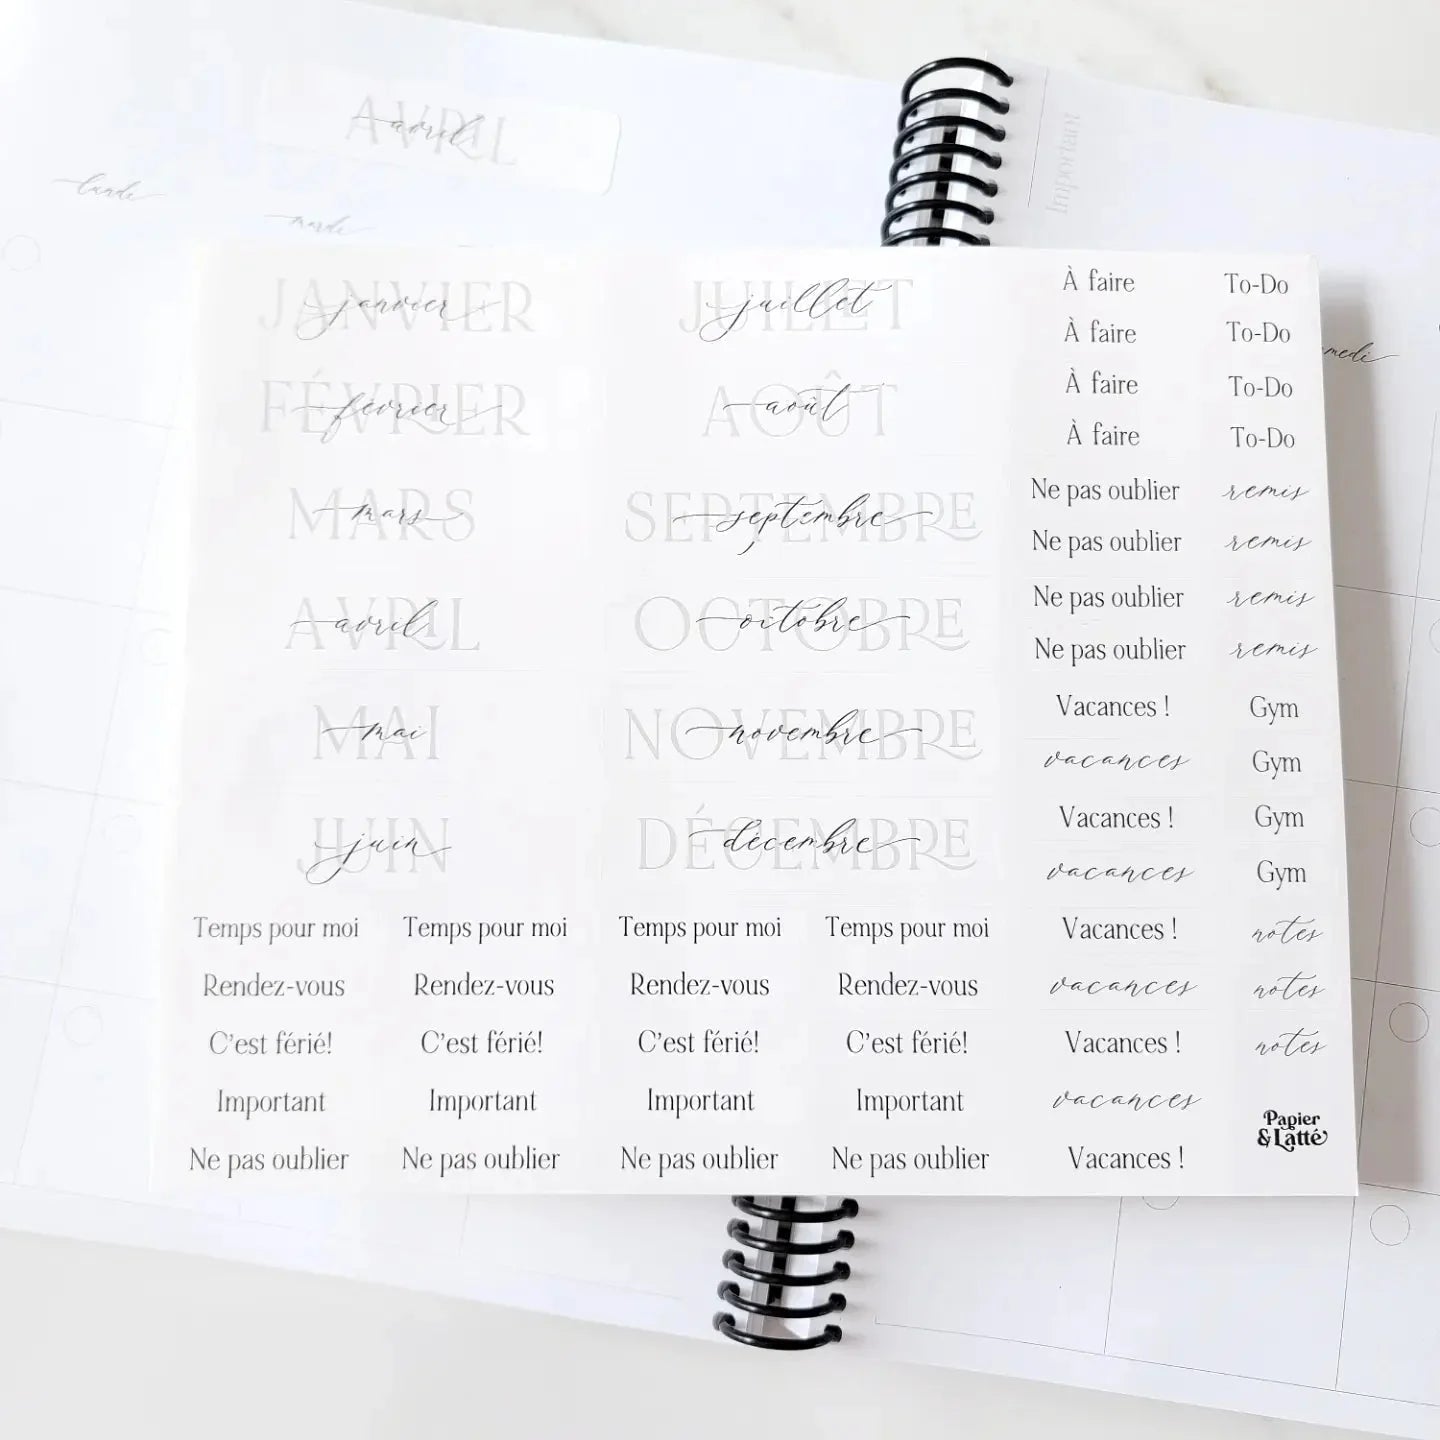 AVRIL
avril
lundi
mardi
Important
medi
JANVIER
janvier
FÉVRIER
février
MARS
mars
AVRIL
avril
MAI
mai
JUIN
juin
JUILLET
juillet
AOÛT
août
SEPTEMBRE
septembre
OCTOBRE
octobre
NOVEMBRE
novembre
DÉCEMBRE
décembre
À faire To-Do
À faire To-Do
À faire To-Do
À faire To-Do
Ne pas oublier remis
Ne pas oublier remis
Ne pas oublier remis
Ne pas oublier remis
Vacances ! Gym
vacances Gym
Vacances ! Gym
vacances Gym
Temps pour moi Temps pour moi Temps pour moi Temps pour moi Vacances ! notes
Rendez-vous Rendez-vous Rendez-vous Rendez-vous vacances notes
C'est férié! C'est férié! C'est férié! C'est férié! Vacances ! notes
Important Important Important Important vacances
Ne pas oublier Ne pas oublier Ne pas oublier Ne pas oublier Vacances !
Papier
& Latté